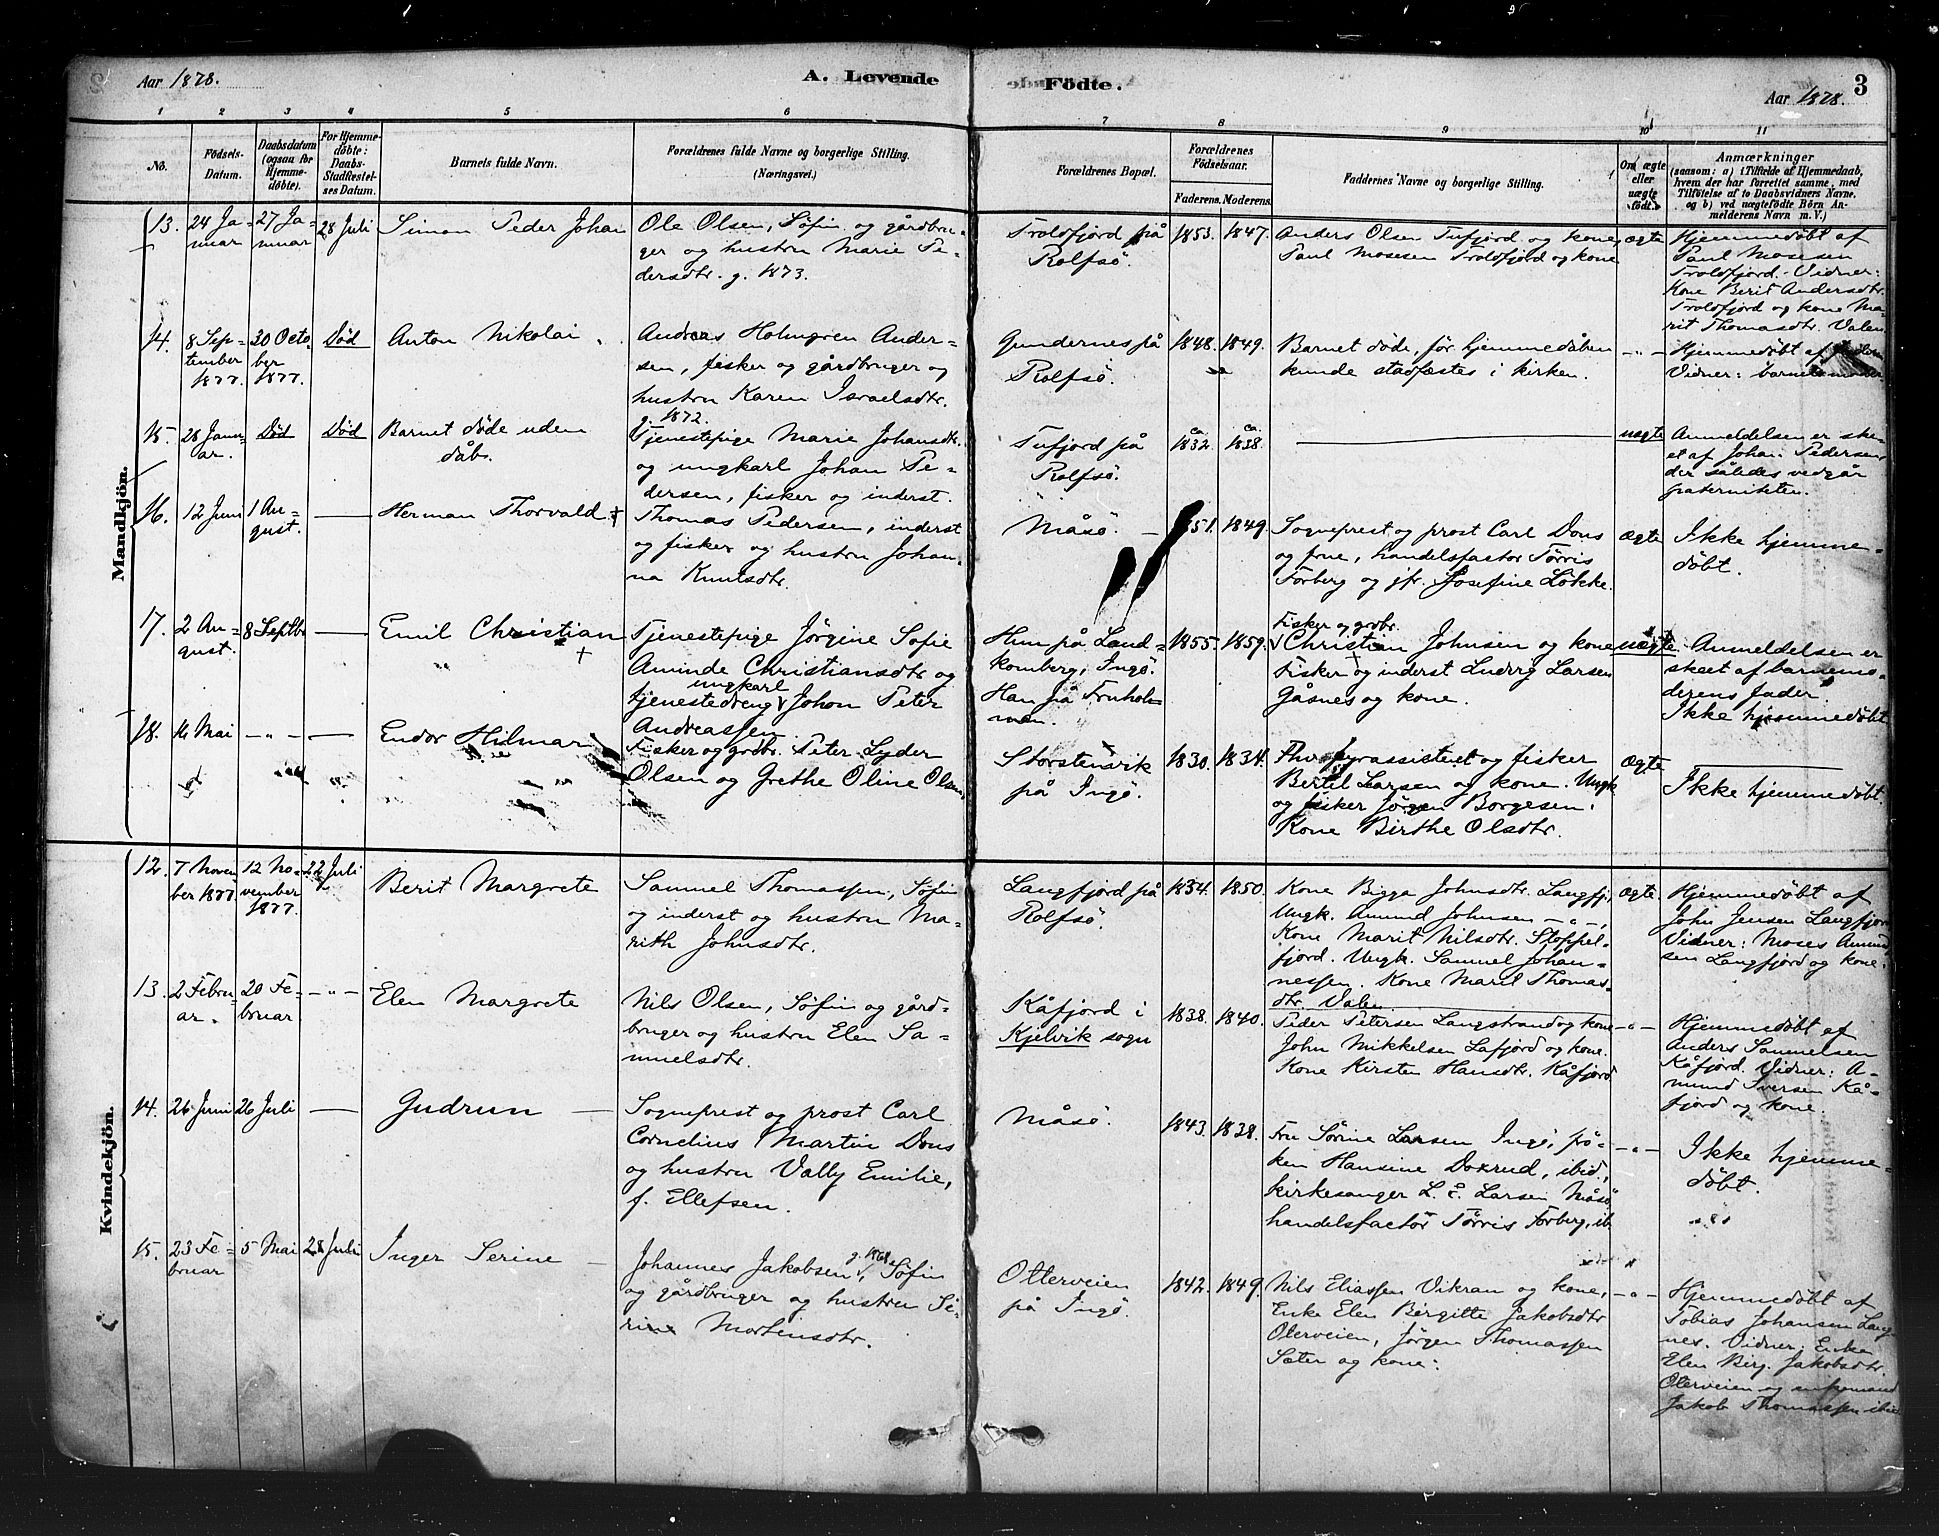 Aar 1878.
A. Levende
Födte.
3
Aar 1878.
1 2 3 4 5 6 7 8 9 10 11
No.
Födsels-Datum.
Daabsdatum (ogsaa for Hjemmedöbte).
For Hjemmedöbte: Daabs-Stadfæstelses Datum.
Barnets fulde Navn.
Forældrenes fulde Navne og borgerlige Stilling.
(Næringsvei.)
Forældrenes Bopæl.
Forældrenes Födselsaar.
Faderens. Moderens.
Faddernes Navne og borgerlige Stilling.
Om ægte eller uægte födt.
Anmærkninger
(saasom: a) i Tilfælde af Hjemmedaab, hvem der har forrettet samme, med Tilföielse af to Daabsvidners Navne, og b) ved uægtefödte Börn Anmelderens Navn m. V.)
Mandkjön.
13. 24 Januar
27 Januar
28 Juli
Simon Peder Johan
Ole Olsen, Søfin og gårdbru-
ger og hustru Marie Pe-
dersdtr. g. 1873.
Troldfjord på
Rolfsö.
1853. 1847.
Anders Olsen Tufjord og kone,
Paul Mosesen Troldfjord og kone
ægte
Hjemmedöbt af
Paul Mosesen
Troldfjord. Vidner:
Kone Berit Andersdtr.
Troldfjord og kone Ma-
rit Thomasdtr. Valen
14. 8 September 1877.
20 October 1877.
Död
Anton Nikolai
Andreas Holmgren Ander-
sen, fisker og gårdbruger og
hustru Karen Israelsdtr.
g. 1872.
Gundernes på
Rolfsö.
1848. 1849.
Barnet döde, för hjemmedåben
kunde stadfæstes i kirken.
-"-
Hjemmedöbt af
Vidner: barnets moder
15. 28 Januar.
Död
Död
Barnet döde uden
dåb.
Tjenestepige Marie Johansdtr.
og ungkarl Johan Pe-
dersen, fisker og inderst.
Tufjord på
Rolfsö.
ca. 1832. ca. 1838.
uægte
Anmeldelsen er ske-
et af Johan Pedersen,
der således vedgår
paterniteten.
16. 12 Juni
1 August.
—
Herman Thorvald +
Thomas Pedersen, inderst
og fisker og hustru Johan-
na Knutsdtr.
Måsö.
1849
Sogneprest og prost Carl Dons
og frue, handelsfactor Törris
Forberg og jfr. Josefine Lökke.
ægte
Ikke hjemme-
döbt.
17. 2 August.
8 Septbr
—
Emil Christian
+
Tjenestepige Jörgine Sofie
Aminde Christiansdtr og
ungkarl
tjenestedreng Johan Peter
Andreassen.
Hun på Land-
komberg, Ingö.
Han på Fruholm-
men.
1855. 1859.
Fisker og grdbr.
Christian Johnsen og kone
Fisker og inderst Ludvig Larsen
Gåsnes og kone.
uægte
Anmeldelsen er
skeet af barnemo-
derens fader
Ikke hjemmedöbt
18. 16 Mai
-"-
—
Endor Hilmar
Fisker og grdbr. Peter Lyder
Olsen og Grethe Oline Olsen.
Storstensvik
på Ingö.
1830. 1834.
og fisker
Bertel Larsen og kone. Ungk
og fisker Jörgen Borgesen.
Kone Birthe Olsdtr.
ægte
Ikke hjemmedöbt.
Kvindekjön.
12. 7 November 1877.
12 November 1877.
22 Juli
Berit Margrete
Samuel Thomassen, Søfin
og inderst og hustru Ma-
rith Johnsdtr.
Langfjord på
Rolfsö.
1834. 1850.
Kone Bigga Johnsdtr. Langfj.,
Ungk. Amund Johnsen -"-,
Kone Marit Nilsdtr. Stoppel-
fjord. Ungk. Samuel Johan-
nessen. Kone Marit Thomas-
dtr. Valen
ægte.
Hjemmedöbt af
John Jensen Langfjord
Vidner: Moses Amund-
sen Langfjord og kone.
13. 2 Februar.
20 Februar
-"-
Elen Margrete
Nils Olsen, Søfin og gård-
bruger og hustru Elen Sa-
muelsdtr.
Kåfjord i
Kjelvik sogn
1838. 1840.
Peder Petersen Langstrand og kone
John Mikkelsen Lafjord og kone.
Kone Kirsten Hansdtr. Kåfjord
-"-
Hjemmedöbt af
Anders Samuelsen
Kåfjord. Vidner: A-
mund Iversen Kå-
fjord og kone.
14. 26 Juni
26 Juli
—
Gudrun
Sogneprest og prost Carl
Cornelius Martin Dons
og hustru Vally Emilie,
f. Ellefsen.
Måsö.
1843. 1838.
Fru Sörine Larsen Ingö, frö-
ken Hansine Doxrud, ibid.,
kirkesanger L. E. Larsen Måsö
handelsfactor Törris Forberg, ib
-"-
Ikke hjemme-
döbt.
15. 23 Februar
5 Mai
28 Juli
Inger Serine
g. 1868
Johannes Jakobsen, Søfin
og gårdbruger og hustru Se-
rine Mortensdtr.
Otterveien
på Ingö.
1842. 1849.
Nils Eliassen Vikran og kone,
Enke Elen Birgitte Jakobsdtr
Oterveien, Jörgen Thomassen
Sæter og kone.
-"-
Hjemmedöbt af
Tobias Johansen Lang-
nes. Vidner: Enke
Elen Birg. Jakobsdtr.
Oterveien og enkemand
Jakob Thomassen ibid